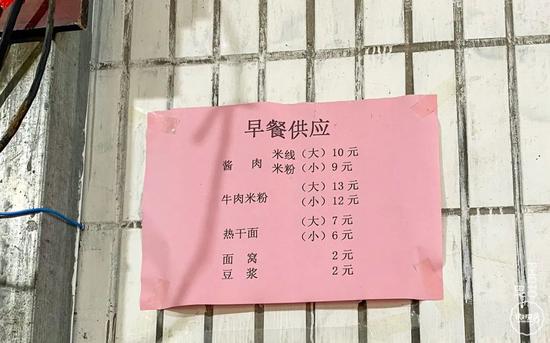 早餐供应
酱 肉 米线（大）10 元
米粉（小）9 元
牛肉米粉 （大）13 元
（小）12 元
热干面 （大）7 元
（小）6 元
面 窝 2 元
豆 浆 2 元